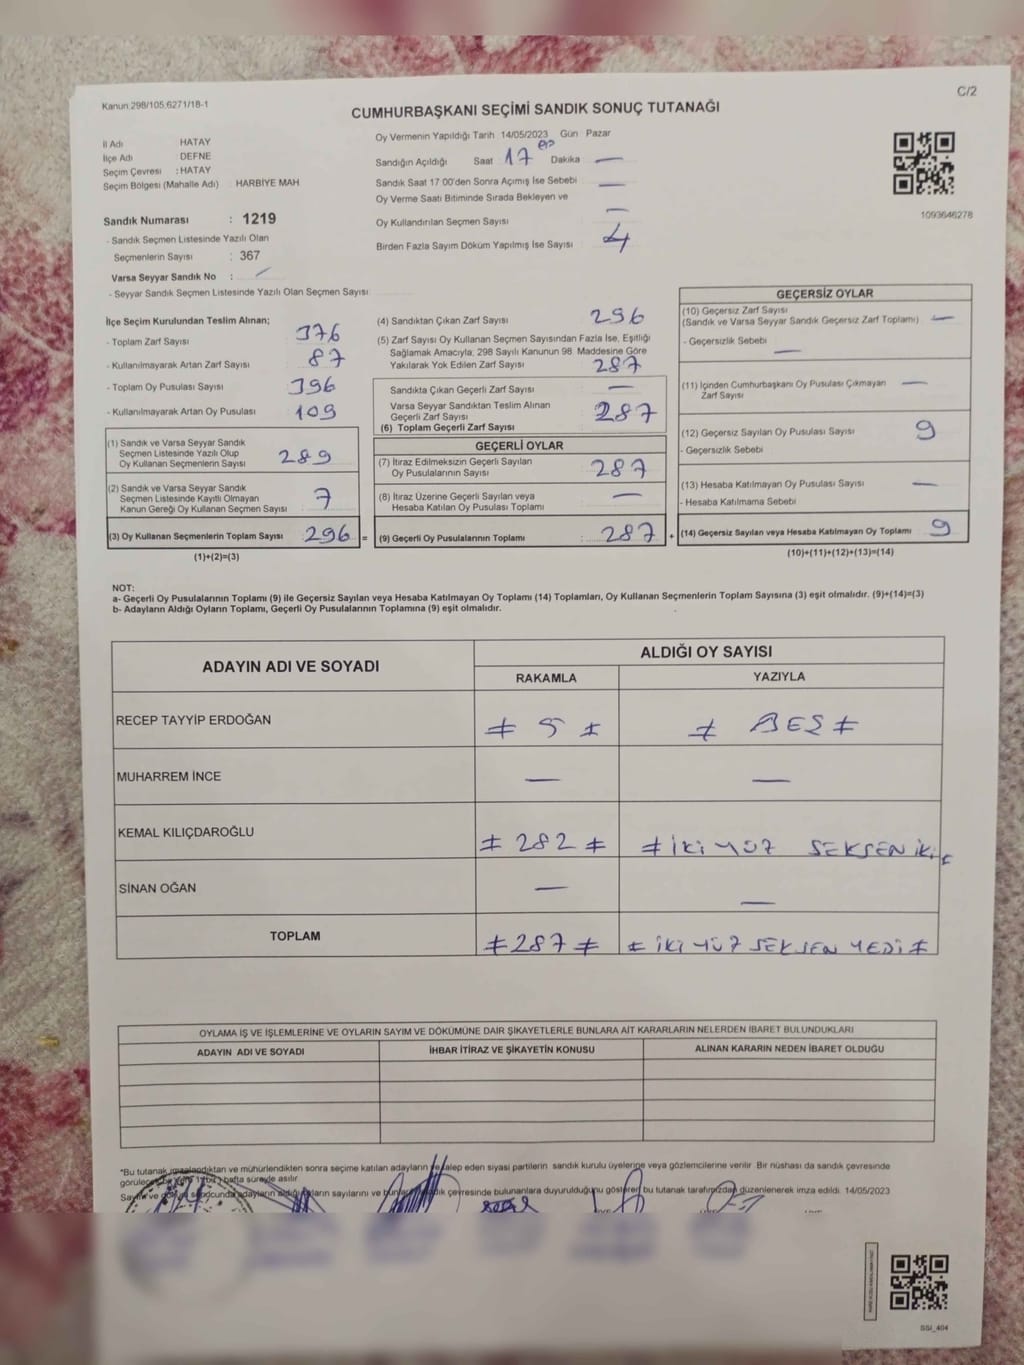 Kanun 298/105,6271/18-1
C/2
CUMHURBAŞKANI SEÇİMİ SANDIK SONUÇ TUTANAĞI
İl Adı HATAY
İlçe Adı DEFNE
Seçim Çevresi : HATAY
Seçim Bölgesi (Mahalle Adı) HARBİYE MAH
Sandık Numarası : 1219
- Sandık Seçmen Listesinde Yazılı Olan
Seçmenlerin Sayısı : 367
Varsa Seyyar Sandık No :
- Seyyar Sandık Seçmen Listesinde Yazılı Olan Seçmen Sayısı
Oy Vermenin Yapıldığı Tarih 14/05/2023 Gün Pazar
Sandığın Açıldığı Saat 17 Dakika —
Sandık Saat 17 00'den Sonra Açımış İse Sebebi —
Oy Verme Saati Bitiminde Sırada Bekleyen ve
Oy Kullandırılan Seçmen Sayısı —
Birden Fazla Sayım Döküm Yapılmış İse Sayısı 4
1093646278
İlçe Seçim Kurulundan Teslim Alınan;
- Toplam Zarf Sayısı 376
- Kullanılmayarak Artan Zarf Sayısı 87
- Toplam Oy Pusulası Sayısı 396
- Kullanılmayarak Artan Oy Pusulası 109
(1) Sandık ve Varsa Seyyar Sandık
Seçmen Listesinde Yazılı Olup
Oy Kullanan Seçmenlerin Sayısı 289
(2) Sandık ve Varsa Seyyar Sandık
Seçmen Listesinde Kayıtlı Olmayan
Kanun Gereği Oy Kullanan Seçmen Sayısı 7
(3) Oy Kullanan Seçmenlerin Toplam Sayısı 296 =
(1)+(2)=(3)
(4) Sandıktan Çıkan Zarf Sayısı 296
(5) Zarf Sayısı Oy Kullanan Seçmen Sayısından Fazla İse, Eşitliği
Sağlamak Amacıyla, 298 Sayılı Kanunun 98. Maddesine Göre
Yakılarak Yok Edilen Zarf Sayısı 287
Sandıkta Çıkan Geçerli Zarf Sayısı —
Varsa Seyyar Sandıktan Teslim Alınan
Geçerli Zarf Sayısı 287
(6) Toplam Geçerli Zarf Sayısı
GEÇERLİ OYLAR
(7) İtiraz Edilmeksizin Geçerli Sayılan
Oy Pusulalarının Sayısı 287
(8) İtiraz Üzerine Geçerli Sayılan veya
Hesaba Katılan Oy Pusulası Toplamı —
(9) Geçerli Oy Pusulalarının Toplamı : 287 +
GEÇERSİZ OYLAR
(10) Geçersiz Zarf Sayısı
(Sandık ve Varsa Seyyar Sandık Geçersiz Zarf Toplamı) —
- Geçersizlik Sebebi —
(11) İçinden Cumhurbaşkanı Oy Pusulası Çıkmayan
Zarf Sayısı —
(12) Geçersiz Sayılan Oy Pusulası Sayısı 9
- Geçersizlik Sebebi
(13) Hesaba Katılmayan Oy Pusulası Sayısı —
- Hesaba Katılmama Sebebi
(14) Geçersiz Sayılan veya Hesaba Katılmayan Oy Toplamı 9
(10)+(11)+(12)+(13)=(14)
NOT:
a- Geçerli Oy Pusulalarının Toplamı (9) ile Geçersiz Sayılan veya Hesaba Katılmayan Oy Toplamı (14) Toplamları, Oy Kullanan Seçmenlerin Toplam Sayısına (3) eşit olmalıdır. (9)+(14)=(3)
b- Adayların Aldığı Oyların Toplamı, Geçerli Oy Pusulalarının Toplamına (9) eşit olmalıdır.
ADAYIN ADI VE SOYADI ALDIĞI OY SAYISI
RAKAMLA YAZIYLA
RECEP TAYYİP ERDOĞAN ≠ 5 ≠ ≠ BEŞ ≠
MUHARREM İNCE — —
KEMAL KILIÇDAROĞLU ≠ 282 ≠ ≠ İKİ YÜZ SEKSEN İKİ ≠
SİNAN OĞAN — —
TOPLAM ≠ 287 ≠ ≠ İKİ YÜZ SEKSEN YEDİ ≠
OYLAMA İŞ VE İŞLEMLERİNE VE OYLARIN SAYIM VE DÖKÜMÜNE DAİR ŞİKAYETLERLE BUNLARA AİT KARARLARIN NELERDEN İBARET BULUNDUKLARI
ADAYIN ADI VE SOYADI İHBAR İTİRAZ VE ŞİKAYETİN KONUSU ALINAN KARARIN NEDEN İBARET OLDUĞU
*Bu tutanak imzalandıktan ve mühürlendikten sonra seçime katılan adayların talep eden siyasi partilerin sandık kurulu üyelerine veya gözlemcilerine verilir. Bir nüshası da sandık çevresinde
hafta süreyle asılır
Sayım ve sonucunda adayların aldığı oyların sayılarını ve çevresinde bulunanlara duyurulduğunu gösteren bu tutanak tarafımızdan düzenlenerek imza edildi. 14/05/2023
SSI_404